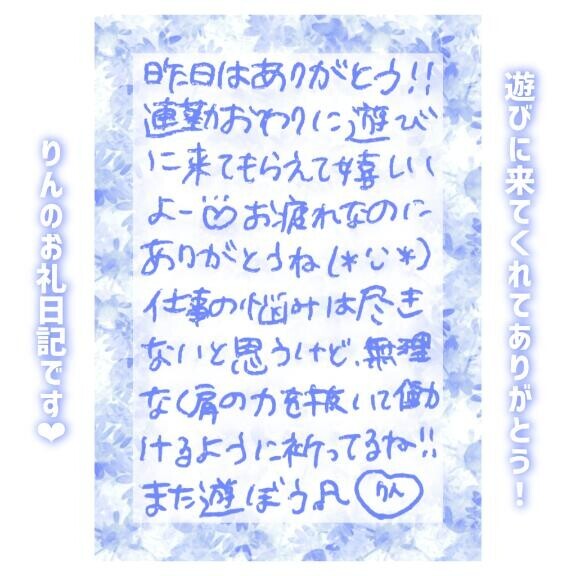 遊びに来てくれてありがとう！
昨日はありがとう!!
連勤おわりに遊び
に来てもらえて嬉しい
よー♡お疲れなのに
ありがとうね(*ᴗ*)
仕事の悩みは尽き
ないと思うけど、無理
なく肩の力を抜いて働
けるように祈ってるね!!
また遊ぼう♫ りん
りんのお礼日記です❤